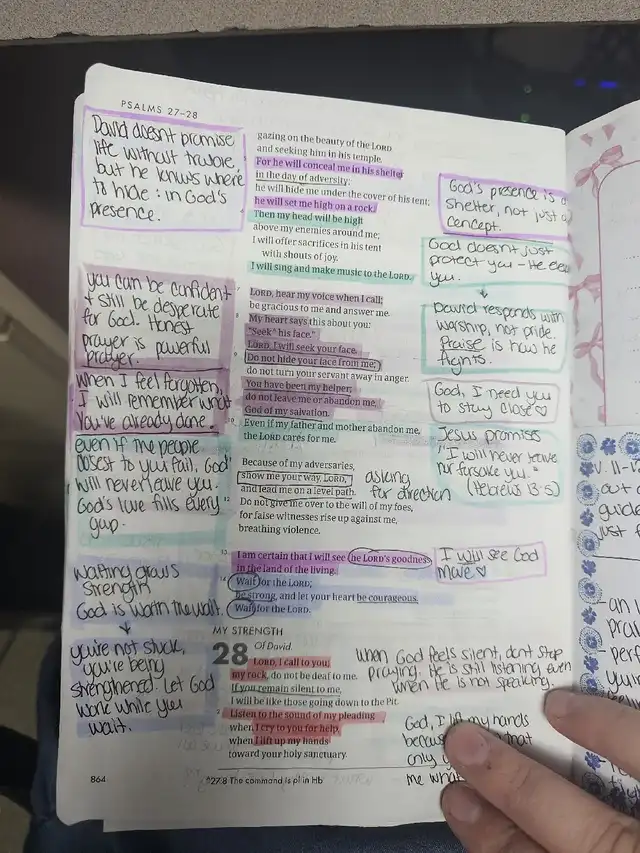 PSALMS 27–28
David doesnt promise
life without trouble,
but he knows where
to hide: in God's
presence.
you can be confident
+ still be desperate
for God. Honest
prayer is powerful
prayer.
When I feel forgotten,
I will remember what
You've already done.
even if the people
closest to you fail, God
will never leave you.
God's love fills every
gap.
waiting grows
strength
God is worth the wait.
you're not stuck,
you're being
strengthened. Let God
work while you
wait.
gazing on the beauty of the LORD
and seeking him in his temple.
For he will conceal me in his shelter
in the day of adversity;
he will hide me under the cover of his tent;
he will set me high on a rock.
Then my head will be high
above my enemies around me;
I will offer sacrifices in his tent
with shouts of joy.
I will sing and make music to the LORD.
7 LORD, hear my voice when I call;
be gracious to me and answer me.
8 My heart says this about you:
"Seek^ his face."
LORD, I will seek your face.
9 Do not hide your face from me;
do not turn your servant away in anger.
You have been my helper;
do not leave me or abandon me,
God of my salvation.
10 Even if my father and mother abandon me,
the LORD cares for me.
Because of my adversaries,
show me your way, LORD,
and lead me on a level path.
12 Do not give me over to the will of my foes,
for false witnesses rise up against me,
breathing violence.
13 I am certain that I will see the LORD's goodness
in the land of the living.
14 Wait for the LORD;
be strong, and let your heart be courageous.
Wait for the LORD.
MY STRENGTH
Of David
28 LORD, I call to you;
my rock, do not be deaf to me.
If you remain silent to me,
I will be like those going down to the Pit.
2 Listen to the sound of my pleading
when I cry to you for help,
when I lift up my hands
toward your holy sanctuary.
864
^27:8 The command is pl in Hb
God's presence is a
shelter, not just a
concept.
God doesn't just
protect you – He
you.
David responds with
worship, not pride.
Praise is how he
fights.
God, I need you
to stay close
Jesus promises
"I will never leave
nor forsake you."
(Hebrews 13:5)
asking
for direction
I will see God
move
when God feels silent, dont stop
praying. He is still listening even
when He is not speaking.
God, I lift my hands
that
only
me
V. 11-
out
guide
just